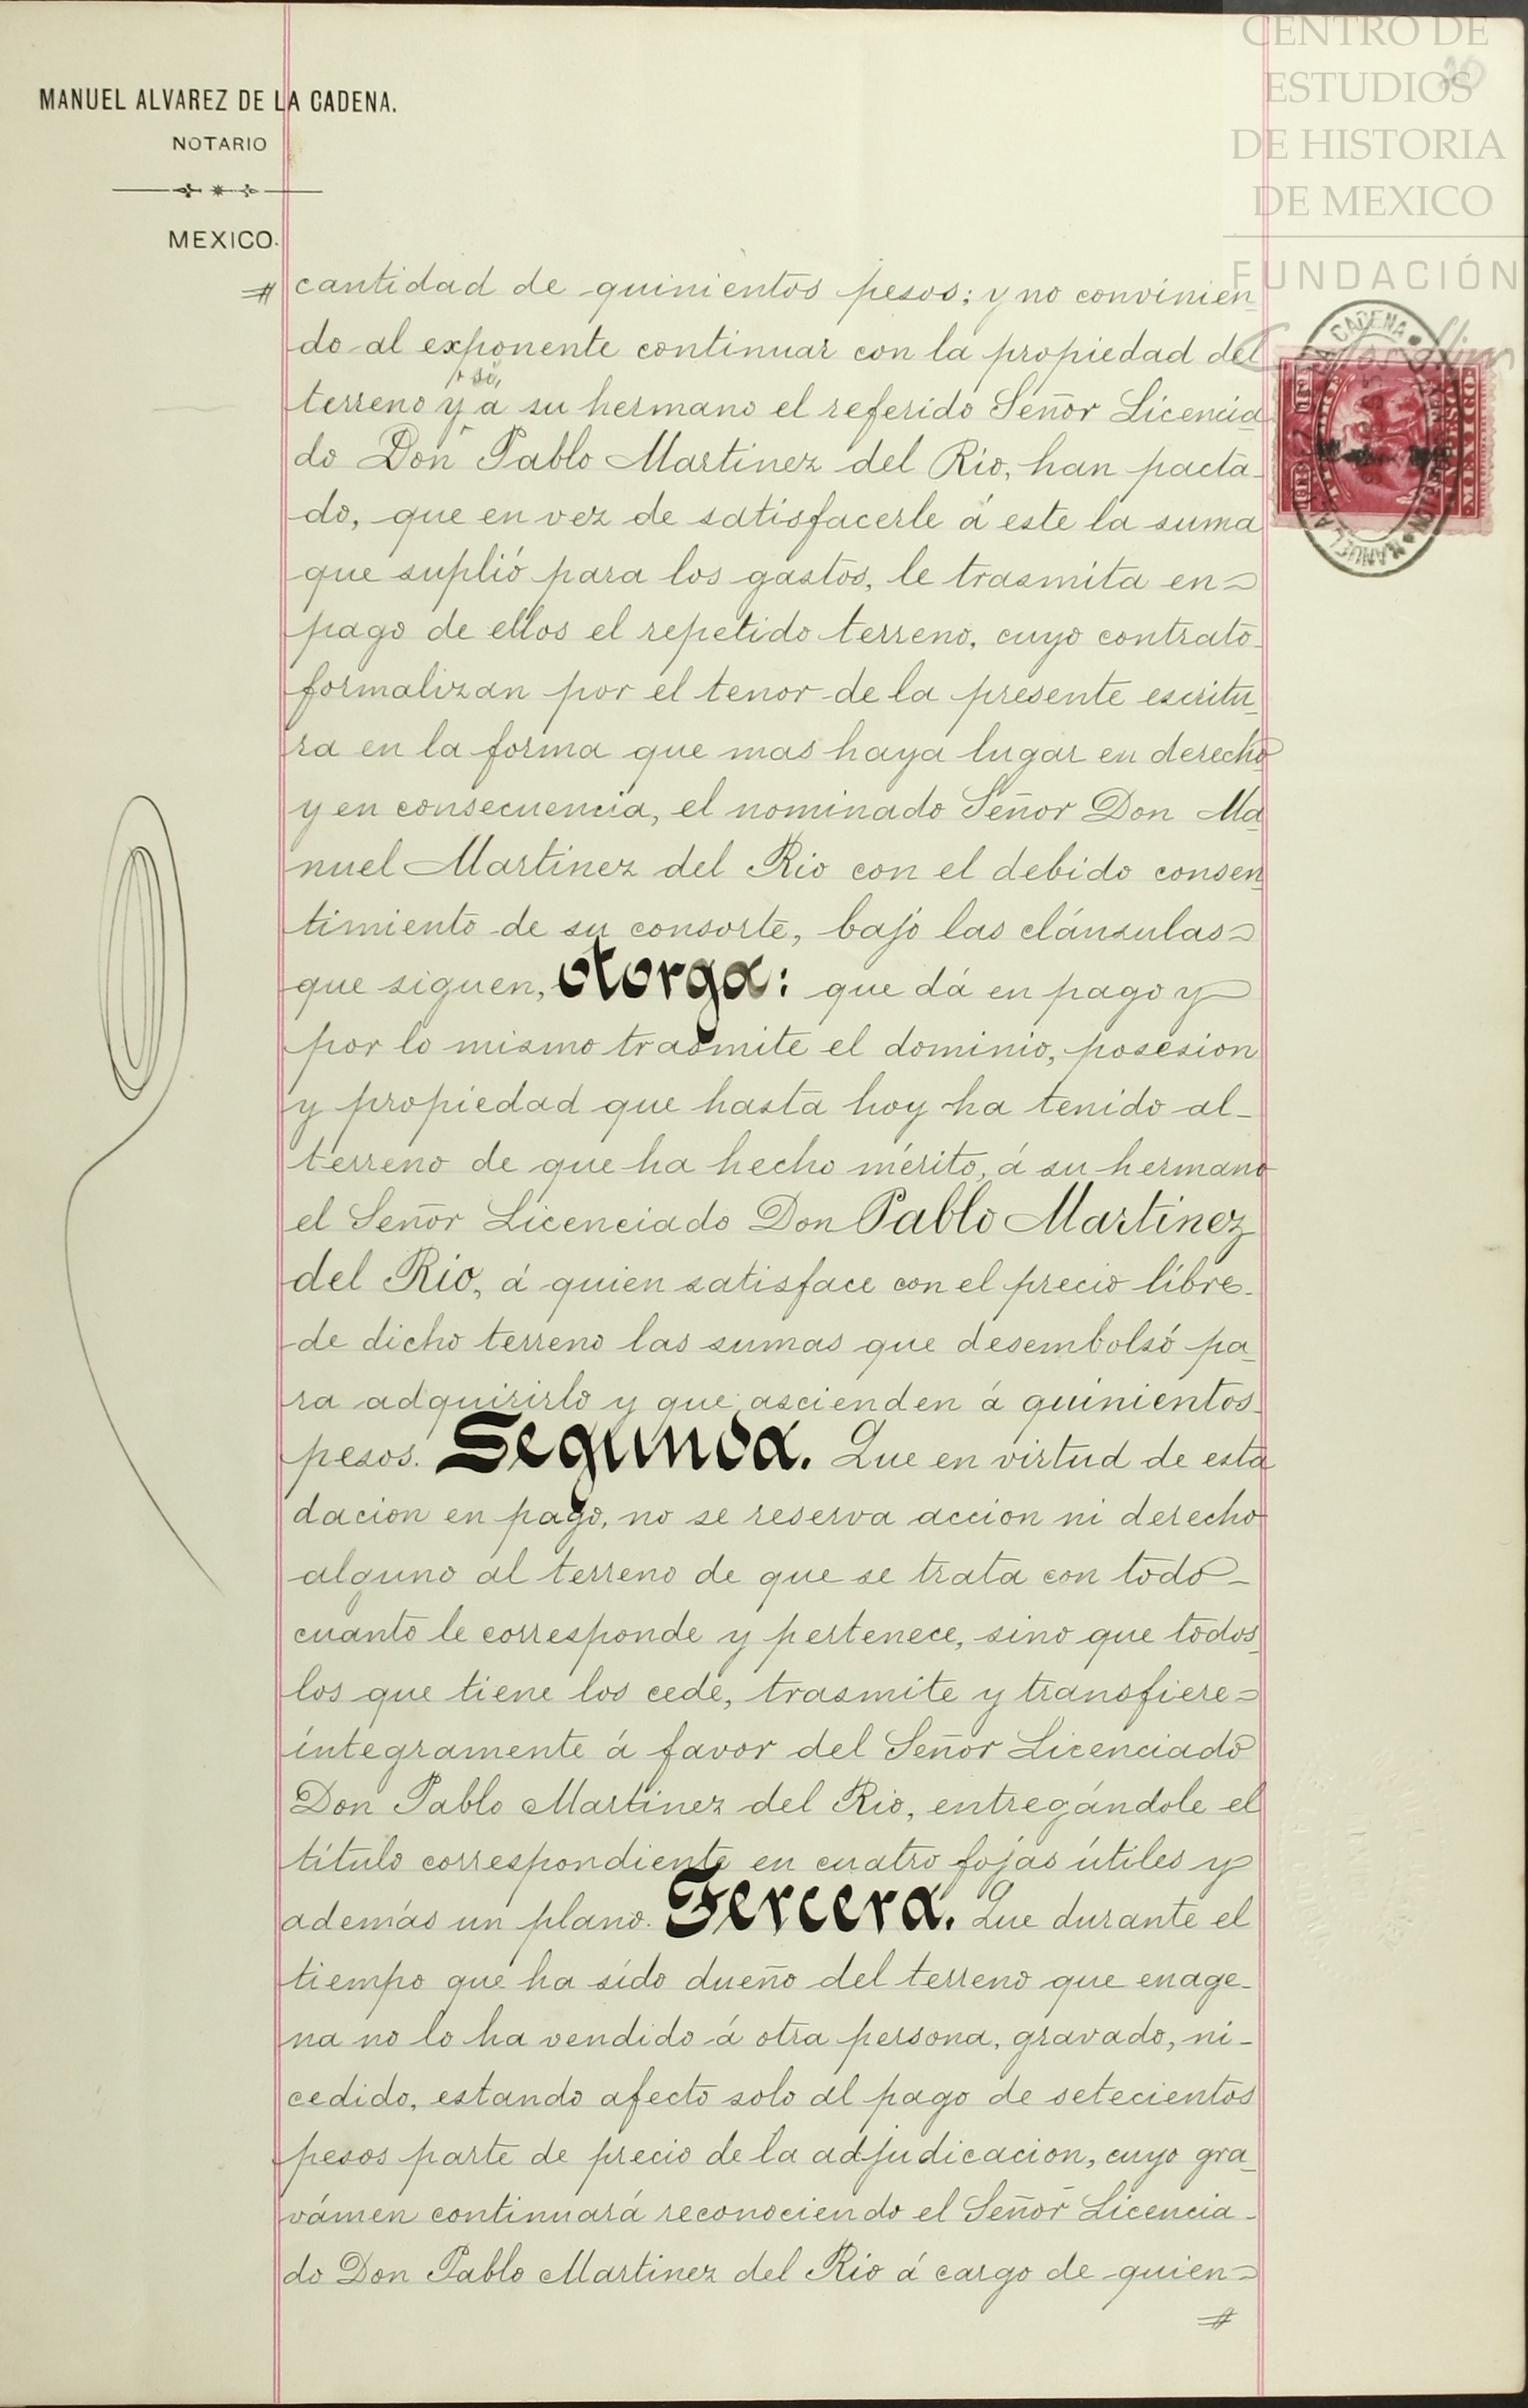 CENTRO DE
ESTUDIOS
DE HISTORIA
DE MEXICO
FUNDACIÓN
MANUEL ALVAREZ DE LA CADENA.
NOTARIO
MEXICO.
cantidad de quinientos pesos; y no convinien
do al exponente continuar con la propiedad del
sí,
terreno y á su hermano el referido Señor Licencia
do Don Pablo Martinez del Rio, han pacta-
do, que en vez de satisfacerle á este la suma
que suplió para los gastos, le trasmita en=
pago de ellos el repetido terreno, cuyo contrato
formalizan por el tenor de la presente escritu
ra en la forma que mas haya lugar en derecho
y en consecuencia, el nominado Señor Don Ma
nuel Martinez del Rio con el debido consen
timiento de su consorte, bajo las cláusulas=
que siguen, otorga: que dá en pago y
por lo mismo trasmite el dominio, posesion
y propiedad que hasta hoy ha tenido al-
terreno de que ha hecho mérito, á su hermano
el Señor Licenciado Don Pablo Martinez
del Rio, á quien satisface con el precio libre-
de dicho terreno las sumas que desembolsó pa
ra adquirirlo y que ascienden á quinientos
pesos. Segunda. Que en virtud de esta
dacion en pago, no se reserva accion ni derecho
alguno al terreno de que se trata con todo-
cuanto le corresponde y pertenece, sino que todos
los que tiene los cede, trasmite y transfiere=
íntegramente á favor del Señor Licenciado
Don Pablo Martinez del Rio, entregándole el
título correspondiente en cuatro fojas útiles y
además un plano. Tercera. Que durante el
tiempo que ha sido dueño del terreno que enage-
na no lo ha vendido á otra persona, gravado, ni-
cedido, estando afecto solo al pago de setecientos
pesos parte de precio de la adjudicacion, cuyo gra
vámen continuará reconociendo el Señor Licencia-
do Don Pablo Martinez del Rio á cargo de quien=